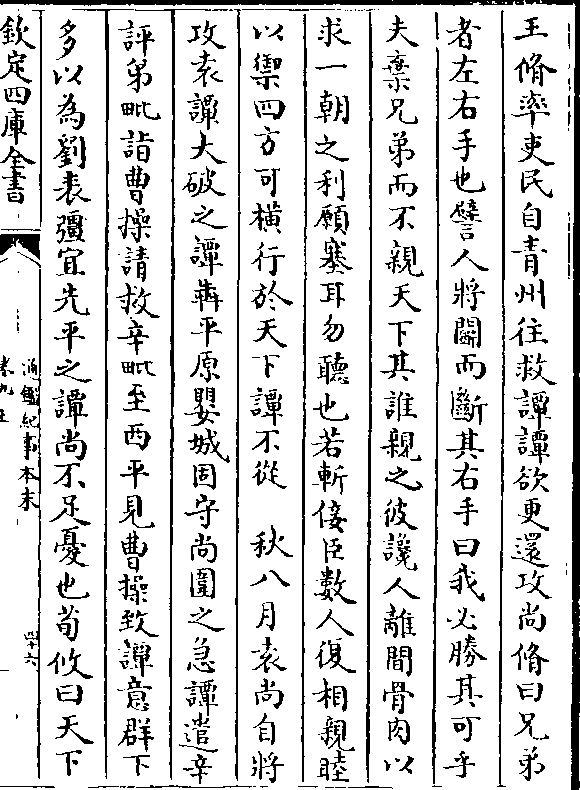 王脩率吏民自青州往救譚譚欲更還攻尚脩曰兄弟
者左右手也譬人將鬬而斷其右手曰我必勝其可乎
夫棄兄弟而不親天下其誰親之彼讒人離間骨肉以
求一朝之利願塞耳勿聽也若斬佞臣數人復相親睦
以禦四方可橫行於天下譚不從　秋八月袁尚自將
攻袁譚大破之譚奔平原嬰城固守尚圍之急譚遣辛
評弟毗詣曹操請救辛毗至西平見曹操致譚意群下
多以為劉表彊宜先平之譚尚不足憂也荀攸曰天下
欽定四庫全書
通鑑紀事本末
卷九上
四十六